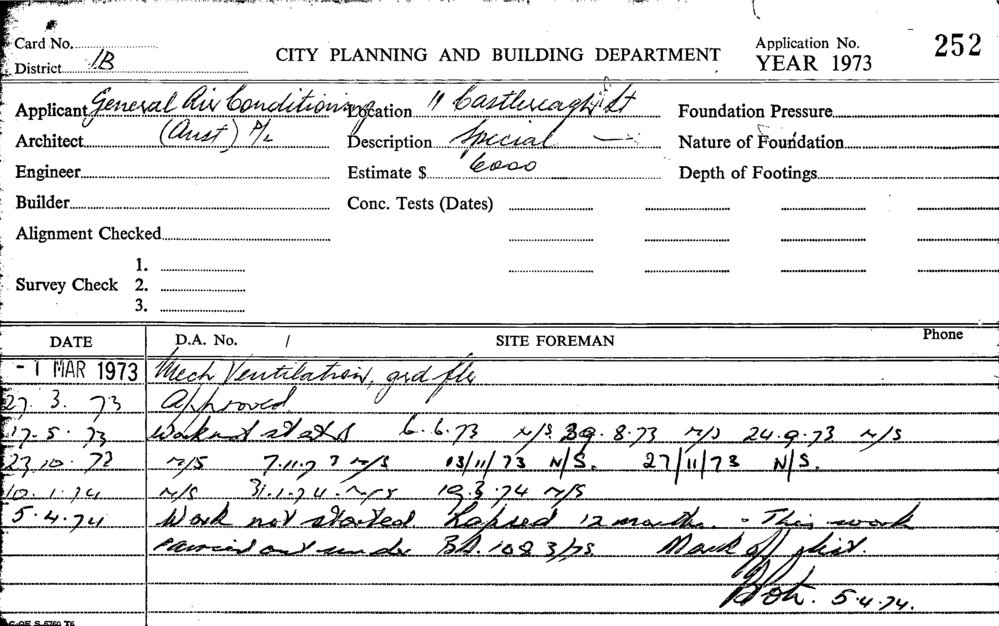 Card No.
District 1B
CITY PLANNING AND BUILDING DEPARTMENT
Application No. 252
YEAR 1973
Applicant General Air Conditioning
(Aust) P/L
Location 11 Castlereagh St
Foundation Pressure
Architect
Description Special
Nature of Foundation
Engineer
Estimate $ 6000
Depth of Footings
Builder
Conc. Tests (Dates)
Alignment Checked
Survey Check 1.
2.
3.
DATE D.A. No. / SITE FOREMAN Phone
- 1 MAR 1973 Mech Ventilation, grd flr
27. 3. 73 Approved
17. 5. 73 Work not started 6.6.73 N/S 8.73 N/S 24.9.73 N/S
23.10.73 N/S 7.11.73 N/S 13/11/73 N/S. 27/11/73 N/S.
10.1.74 N/S 31.1.74 N/S 19.3.74 N/S
5.4.74 Work not started Lapsed 12 months. - This work
carried out under BA. 1083/73. Mark off plist.
5.4.74.